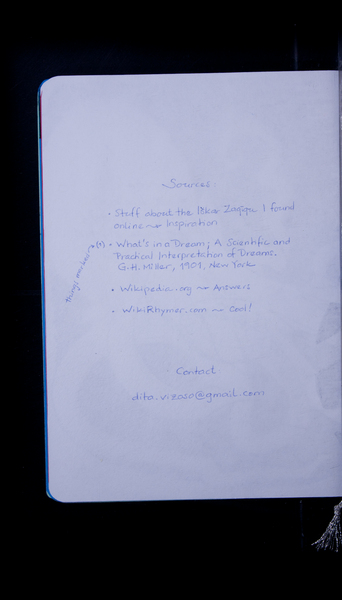 Sources:
• Stuff about the Ziqiqu I found
online ~ Inspiration
(*) • What's in a Dream; A Scientific and
Practical Interpretation of Dreams.
G.H. Miller, 1901, New York
• Wikipedia.org ~ Answers
• WikiRhymer.com ~ Cool!
Contact
dito.vizoso@gmail.com